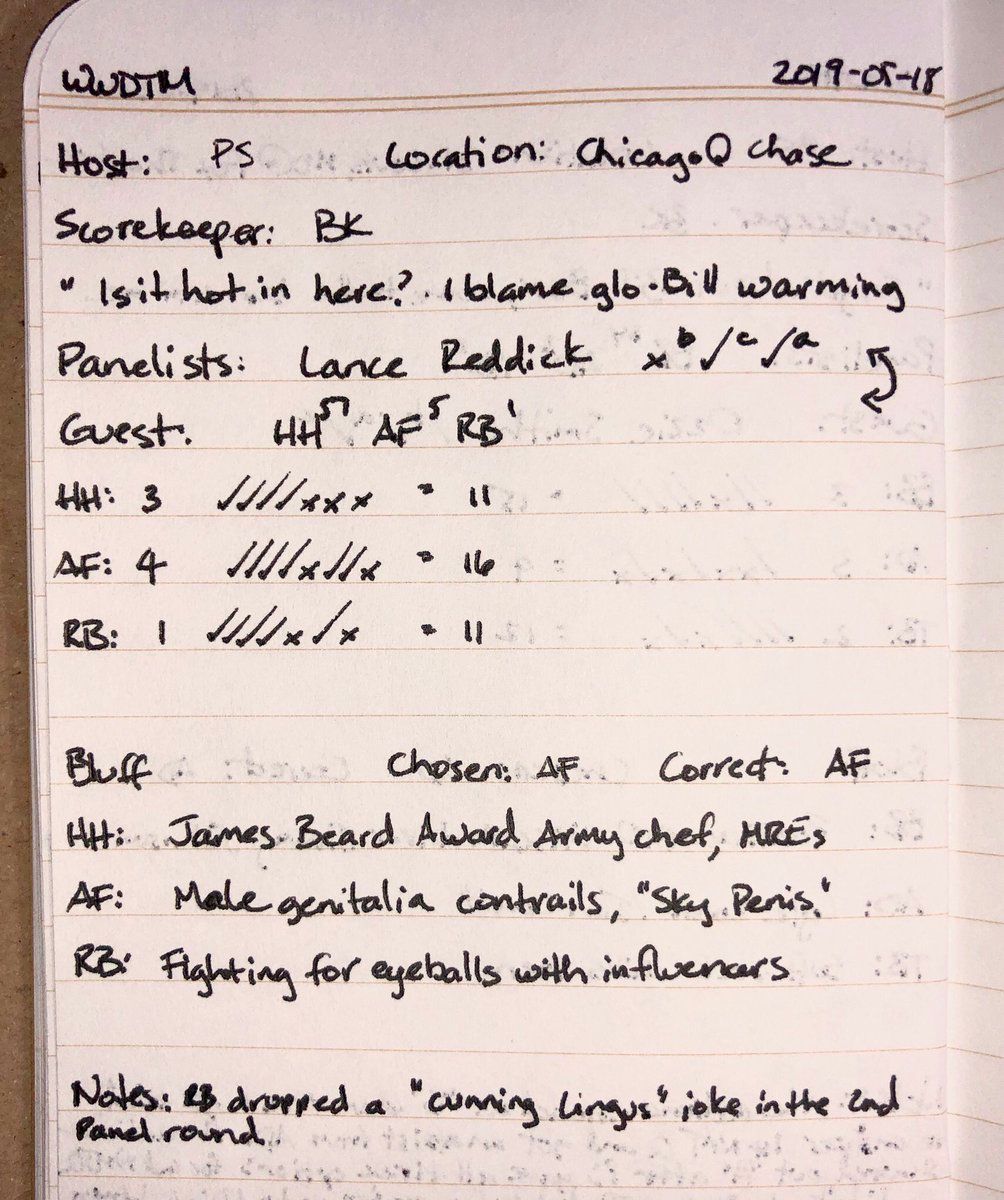 WWDTM 2019-05-18
Host: PS Location: Chicago @ Chase
Scorekeeper: BK
" Is it hot in here? I blame glo-Bill warming
Panelists: Lance Reddick x b ✓ c ✓ a
Guest. HH 5 AF 5 RB 1
HH: 3 ✓✓✓✓xxx = 11
AF: 4 ✓✓✓✓x✓✓x = 16
RB: 1 ✓✓✓✓x✓x = 11
Bluff Chosen: AF Correct: AF
HH: James Beard Award Army chef, MREs
AF: Male genitalia contrails, "Sky Penis."
RB: Fighting for eyeballs with influencers
Notes: RB dropped a "cunning lingus" joke in the 2nd
Panel round.